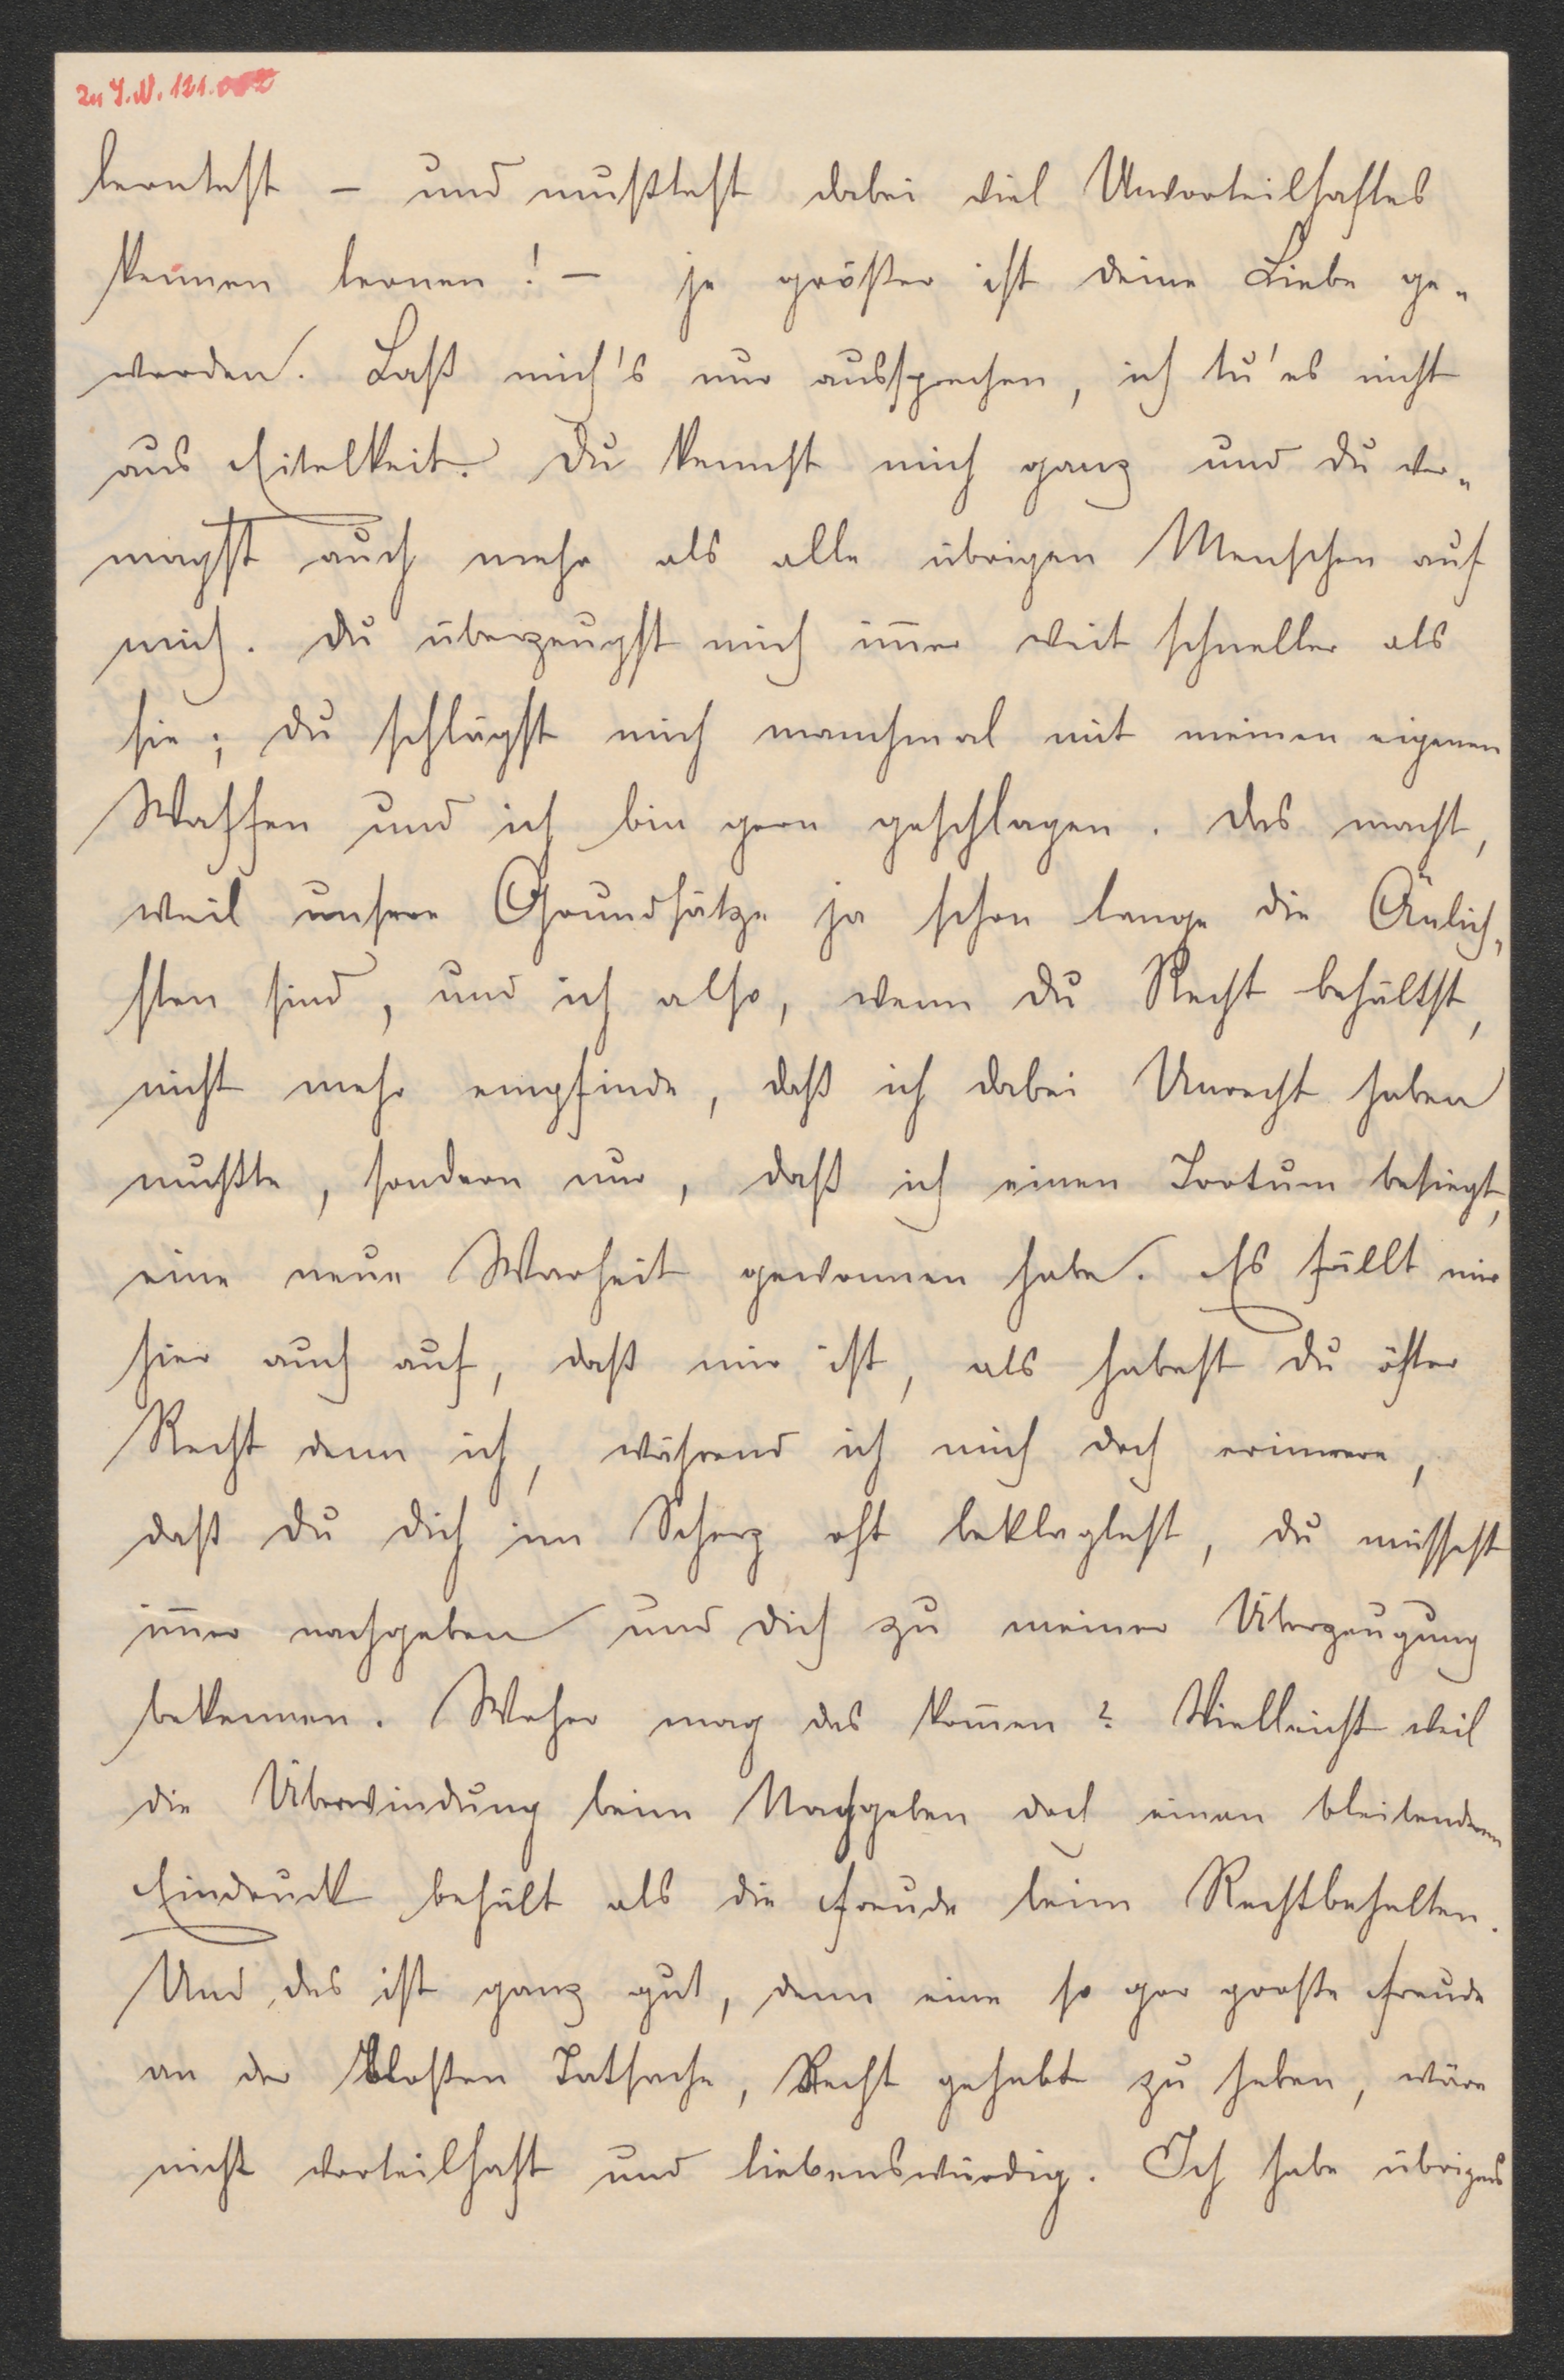 zu I.N. 121.
lerntest – und mußtest dabei viel Unvorteilhaftes
kennen lernen! – je größer ist deine Liebe ge-
worden. Laß mich's nur aussprechen, ich tu' es nicht
aus Eitelkeit. Du kennst mich ganz und du ver-
magst auch mehr als alle übrigen Menschen auf
mich. Du überzeugst mich im̅er weit schneller als
sie; du schlägst mich manchmal mit meinen eigenen
Waffen und ich bin gern geschlagen. Das macht,
weil unsere Grundsätze ja schon lange die Änlich-
sten sind, und ich also, wenn du Recht behältst,
nicht mehr empfinde, daß ich dabei Unrecht haben
mußte, sondern nur, daß ich einen Irrtum besiegt,
eine neue Warheit gewonnen habe. Es fällt mir
hier auch auf, daß mir ist, als habest du öfter
Recht denn ich, während ich mich doch erinnere,
daß du dich im Scherz oft beklagtest, du müssest
im̅er nachgeben und dich zu meiner Überzeugung
bekennen. Woher mag das kom̅en? Vielleicht weil
die Überwindung beim Nachgeben doch einen bleibenderen
Eindruck behält als die Freude beim Rechtbehalten.
Und das ist ganz gut, denn eine so gar große Freude
an der bloßen Tatsache, Recht gehabt zu haben, wäre
nicht vorteilhaft und liebenswürdig. Ich habe übrigens